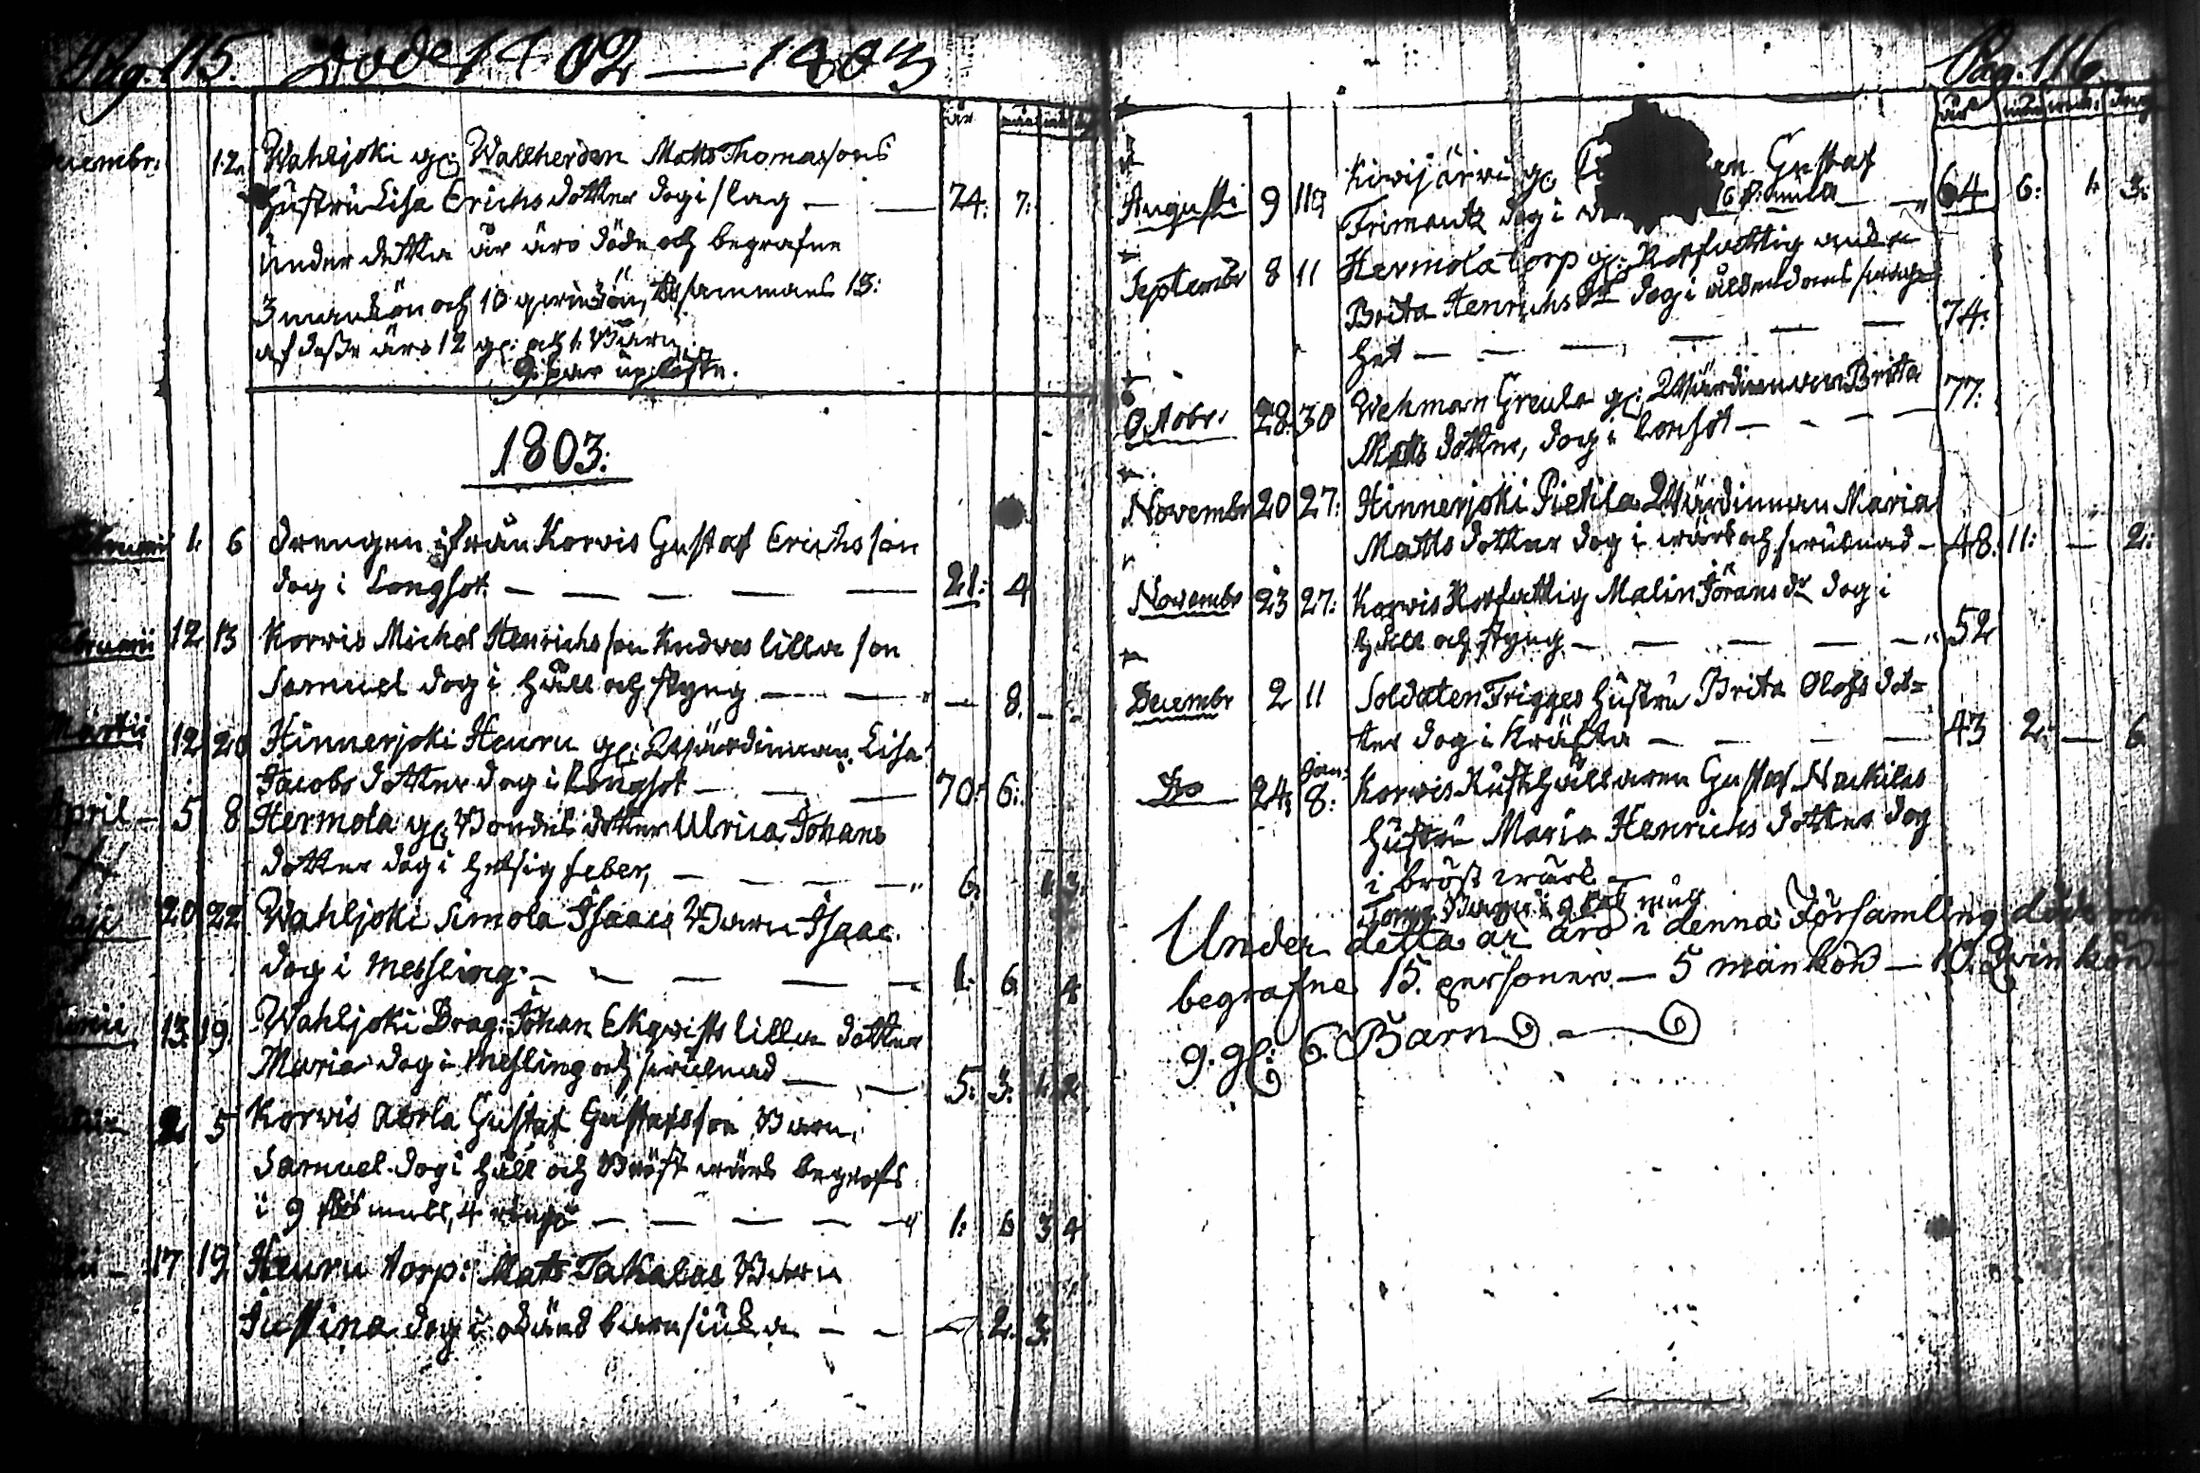 Pag. 115. Döde 1802 — 1803
år
Decembr: 12. Wahljoki gl: Wallherden Matts Thomassons
Hustru Lisa Erichs dotter dog i slag — — 74. 7.
Under detta år äro döde och begrafne
3 mankön och 10 qwinkön, tilsammans 13:
af desse äro 12 gl: och 1. Barn.
9. par uplöste.
1803:
1. 6 Drengen ifrån Korvis Gustaf Erichsson
dog i Longsot — — — — — 21: 4
Februarii 12 13 Korvis Michel Henrichsson Kndras lilla son
Samuel dog i håll och styng — — — 8.
Martii 12 20 Hinnerjoki Heuru gl: Wärdinnan Lisa
Jacobs dotter dog i Longsot — — — 70: 6:
April — 5 8 Hermola gl: Bondens dotter Ulrica Johans
dotter dog i hetsig feber, — — — — 6. 1. 3.
Maji 20 22 Wahljoki Simola Isaacs Barn Isaac
dog i Messling — — — — — 1: 6 4
Junii 13. 19. Wahljoki Drag: Johan Ekqvists lilla dotter
Maria dog i Messling och swulnad — — 5: 3: 1. 2.
2 5 Korvis Gustaf Gustafsson Barn,
Samuel dog i håll och Bröst wärk begrofs
i 9 mull, 4 — — — — — 1: 6 3 4
17 19 Heuru torp: Matts Takalas Barn
Justina dog i okänd barnsiuka — — — 2. 3.
Pag. 116.
år
Kiwijärwi gl Gustaf
Augusti 9 11 Trimontz dog i — 64 6: 1. 3:
Septembr 8 11 Hermola torp gl: Rotfattig
Brita Henrichs Dr dog i ålderdoms swag-
het — — — — — — 74:
Octobr. 28. 30 Wehman Greula gl: Wärdinnan Brita 77:
Matts dotter, dog i Lonsot — - - —
Novembr 20 27: Hinnerjoki Pietila Wärdinnan Maria
Matts dotter dog i wärk och swulnad — 48. 11: — 2:
Novembr 23 27: Korvis Rotfattig Malin Jörans dr dog i
håll och styng — — — — — 52
Decembr 2 11 Soldaten Trigges hustru Brita Olofs dot=
ter dog i Kräfta — — — — 43 2: — 6
Jan:
Do 24. 8: Korvis Rusthållaren Gustaf Nackilas
hustru Maria Henrichs dotter dog
i bröst wärk —
Under detta år äro i denna Församling döde och
begrafne 15. personer — 5 mankön — 10. Qvinkön
9. gl: 6. Barn